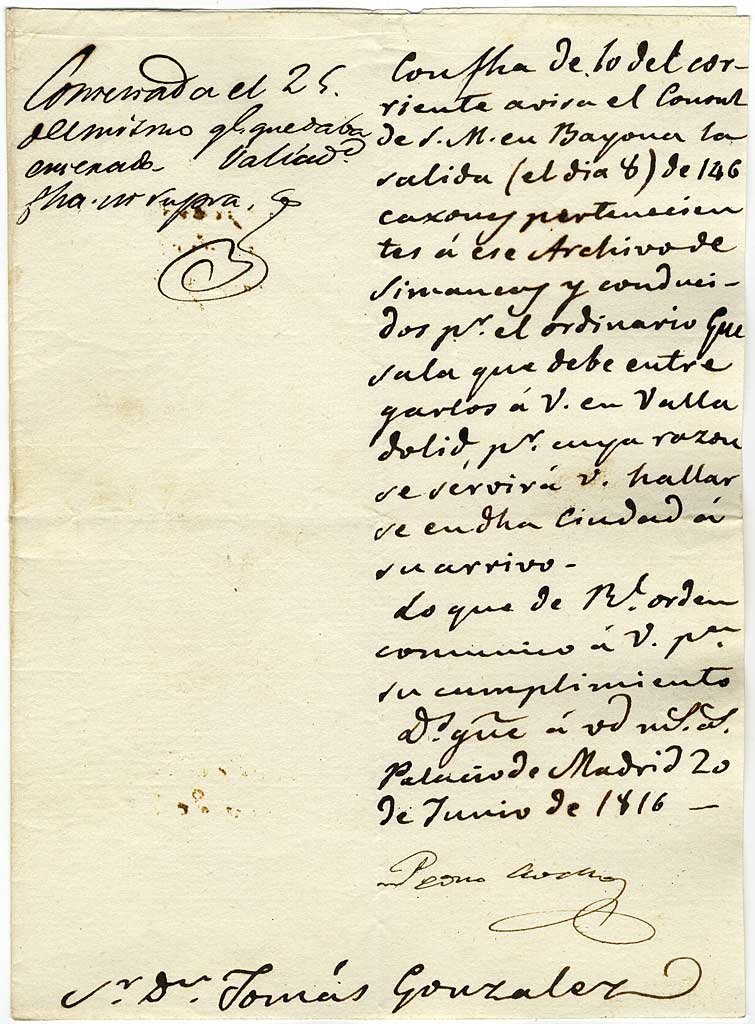 Contestada el 25.
del mismo q.e quedaba
enterado Valiad.d
fha. ut supra.
Con fha de 10 del cor-
riente avisa el Consul
de S. M. en Bayona la
salida (el dia 8) de 146
caxones pertenecien
tes á ese Archivo de
Simancas y conduci-
dos p.r el ordinario Que
sala que debe entre
garlos á V. en Valla
dolid, p.r cuya razon
se servirá V. hallar
se en dha Ciudad á
su arrivo -
Lo que de R.l orden
comunico á V. p.a
su cumplimiento
D.s gūe á vd m.s a.s
Palacio de Madrid 20
de Junio de 1816 —
Pedro Cevallos
S.r D.n Tomás Gonzalez